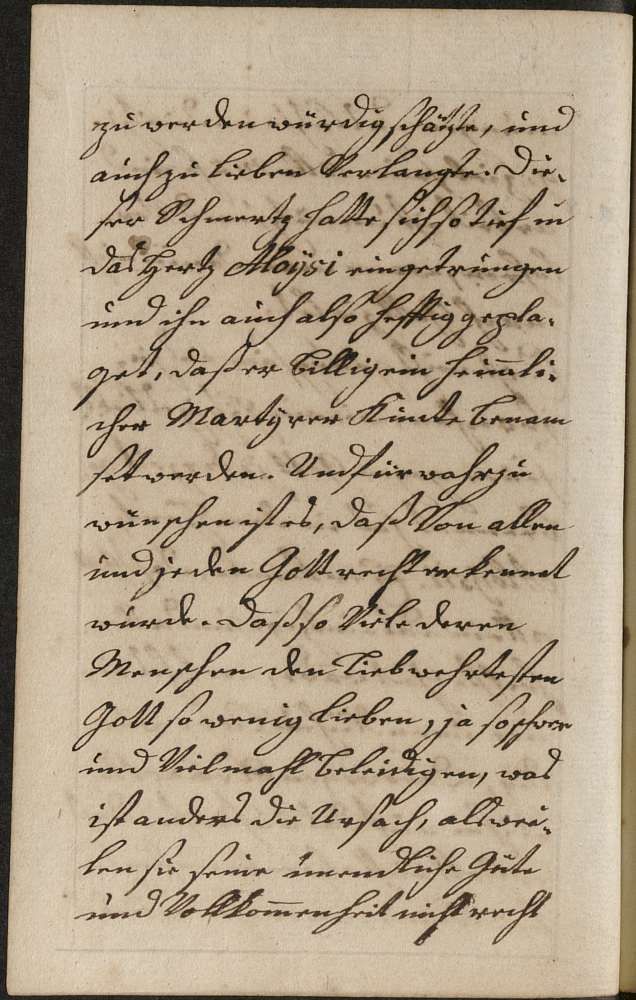 zu werden würdig schätzte, und
auch zu lieben Verlangte. Die-
ser Schmertz hatte sich so tief in
das Hertz Aloÿsi eingetrungen
und ihn auch also hefftig gepla-
get, daß er billig ein heimli-
cher Martÿrer kunte benam-
set werden. Und fürwahr zu
wünschen ist es, daß Von allen
und jeden Gott recht erkennet
wurde. Daß so Viele deren
Menschen den Liebwehrtesten
Gott so wenig lieben, ja so schwer
und Vielmahl beleidigen, was
ist anders die Ursach, als wei-
len sie seine unendliche Güte
und Vollkommenheit nicht recht